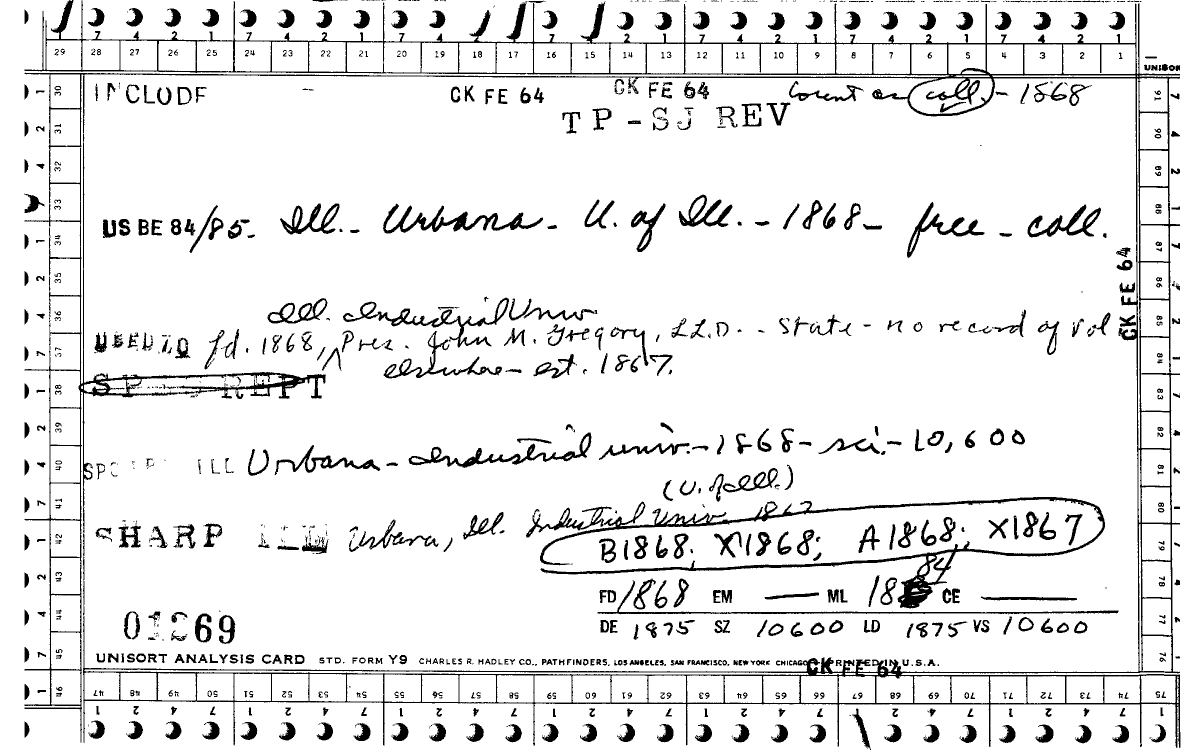 7 4 2 1 7 4 2 1 7 4 2 1 7 4 2 1 7 4 2 1 7 4 2 1 7 4 2 1
29 28 27 26 25 24 23 22 21 20 19 18 17 16 15 14 13 12 11 10 9 8 7 6 5 4 3 2 1
UNISOR
INCLUDE CK FE 64 CK FE 64 Count as coll. - 1868
TP-SJ REV
US BE 84/85- Ill.- Urbana- U. of Ill.- 1868- free- coll.
CK FE 64
Ill. Industrial Univ
USED ZO fd. 1868, ^ Pres. John M. Gregory, LL.D. - State - no record of vol
elsewhere- est. 1867.
REPT
ILL Urbana- Industrial univ.- 1868- sci.- 10,600
(U. of Ill.)
SHARP ILL Urbana, Ill. Industrial Univ. 1867
B1868; X1868; A1868; X1867
84
FD 1868 EM — ML 18 CE —
DE 1875 SZ 10600 LD 1875 VS 10600
01269
UNISORT ANALYSIS CARD STD. FORM Y9 CHARLES R. HADLEY CO., PATHFINDERS, LOS ANGELES, SAN FRANCISCO, NEW YORK CHICAGO PRINTED IN U.S.A.
CK FE 64
30 31 32 33 34 35 36 37 38 39 40 41 42 43 44 45 46
91 90 89 88 87 86 85 84 83 82 81 80 79 78 77 76 75
47 48 49 50 51 52 53 54 55 56 57 58 59 60 61 62 63 64 65 66 67 68 69 70 71 72 73 74
1 2 4 7 1 2 4 7 1 2 4 7 1 2 4 7 1 2 4 7 1 2 4 7 1 2 4 7